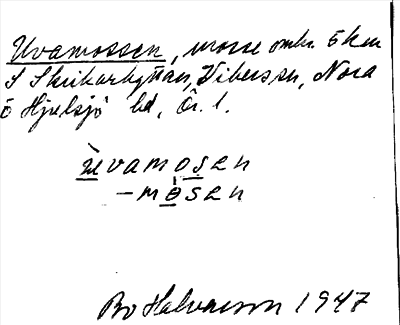 Uvamossen, mosse omkr. 5 km
S Skrikarhyttan, Vibersson, Nora
o Hjulsjö bd, Ör. l.
ùvamosen
– mòsen
Bo Halvarson 1947